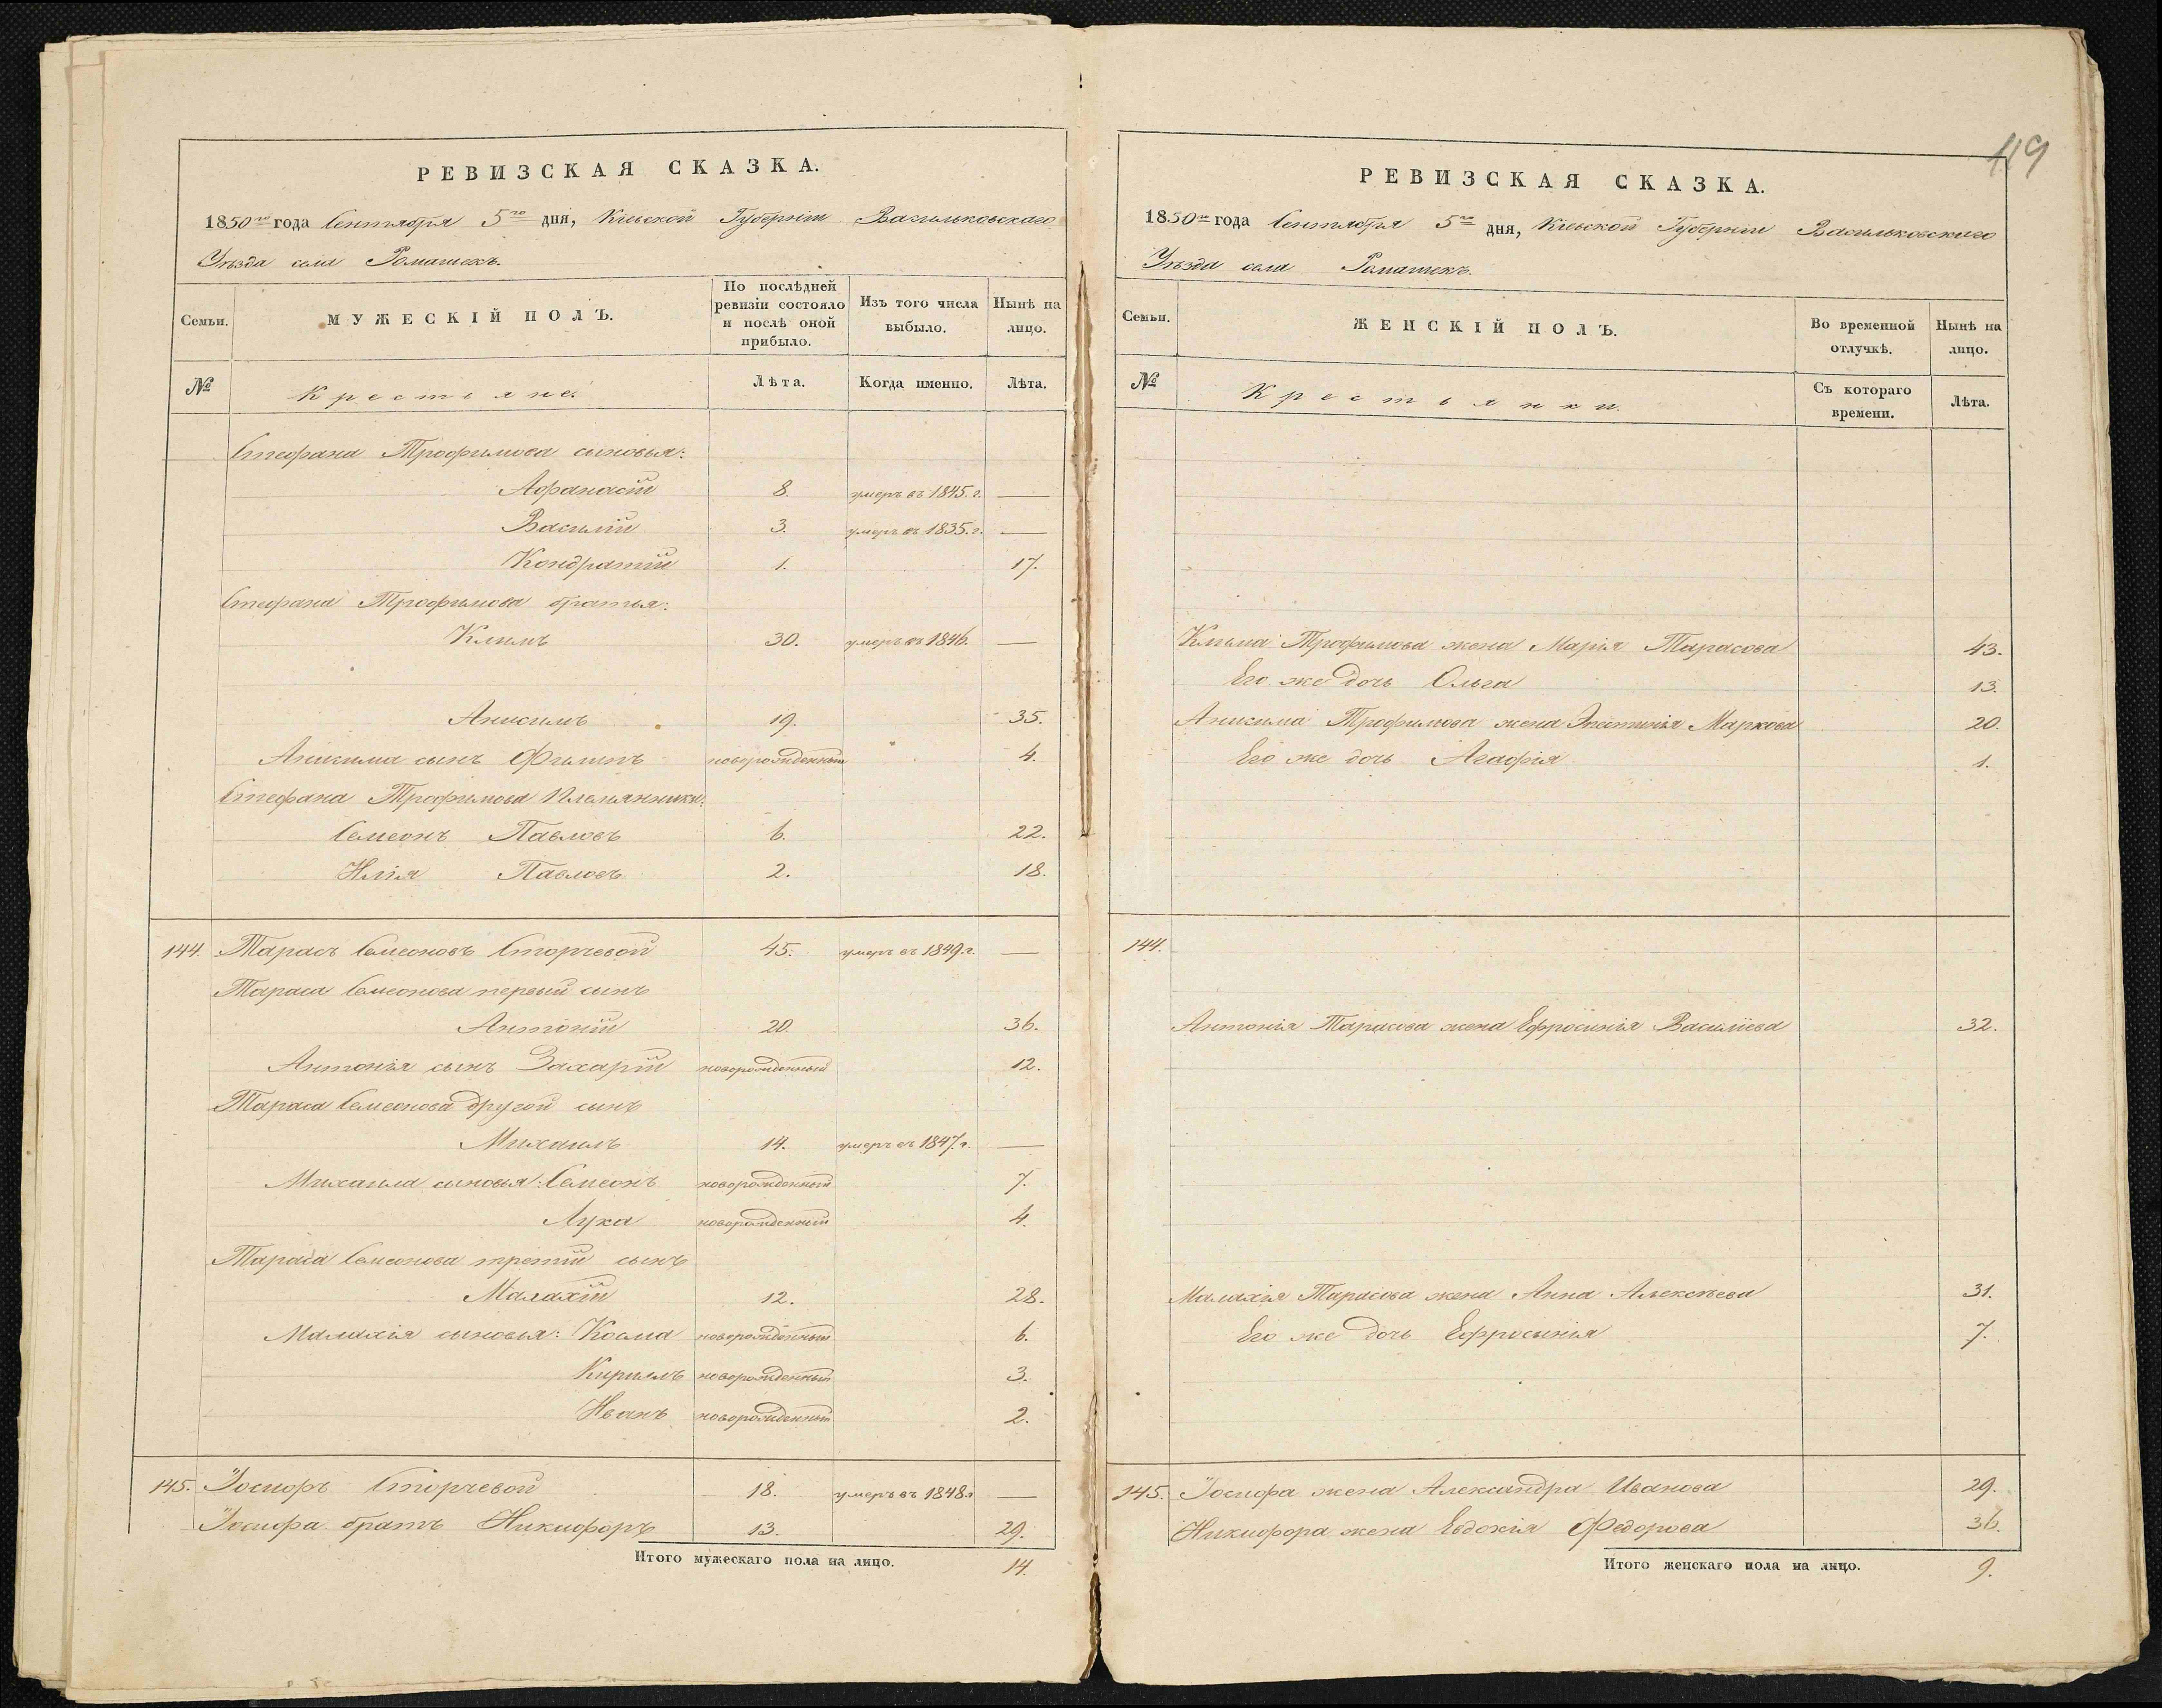 РЕВИЗСКАЯ СКАЗКА.
1850го года Сентября 5го дня, Кіевской Губерніи Васильковскаго
Уѣзда села Ромашекъ.
Семьи.
МУЖЕСКІЙ ПОЛЪ.
По послѣдней ревизіи состояло и послѣ оной прибыло.
Изъ того числа выбыло.
Нынѣ на лицо.
№
Крестьяне.
Лѣта.
Когда именно.
Лѣта.
Стефана Трофимова сыновья:
Афанасій 8. умеръ въ 1845. г. —
Василій 3. умеръ въ 1835. г. —
Кондратій 1. 17.
Стефана Трофимова братья:
Климъ 30. умеръ въ 1846. —
Анисимъ 19. 35.
Анисима сынъ Филипъ новорожденный 4.
Стефана Трофимова Племянники:
Семеонъ Павловъ 6. 22.
Илія Павловъ 2. 18.
144. Тарасъ Семеоновъ Сторчевой 45. умеръ въ 1849. г. —
Тараса Семеонова первый сынъ
Антоній 20. 36.
Антонія сынъ Захарій новорожденный 12.
Тараса Семеонова другой сынъ
Михаилъ 14. умеръ въ 1847. г. —
Михаила сыновья: Семеонъ новорожденный 7.
Лука новорожденный 4.
Тараса Семеонова третій сынъ
Малахій 12. 28.
Малахія сыновья: Косма новорожденный 6.
Кирилъ новорожденный 3.
Иванъ новорожденный 2.
145. Іосифъ Сторчевой 18. умеръ въ 1848. г —
Іосифа братъ Никифоръ 13. 29.
Итого мужескаго пола на лицо. 14.
119
РЕВИЗСКАЯ СКАЗКА.
1850го года Сентября 5го дня, Кіевской Губерніи Васильковскаго
Уѣзда села Ромашекъ.
Семьи.
ЖЕНСКІЙ ПОЛЪ.
Во временной отлучкѣ.
Нынѣ на лицо.
№
Крестьянки.
Съ котораго времени.
Лѣта.
Клима Трофимова жена Марія Тарасова 43.
Его же дочь Ольга 13.
Анисима Трофимова жена Экстинія Маркова 20.
Его же дочь Агафія 1.
144.
Антонія Тарасова жена Ефросинія Василіева 32.
Малахія Тарасова жена Анна Алексѣева 31.
Его же дочь Ефросинія 7.
145. Іосифа жена Александра Иванова 29.
Никифора жена Евдокія Федорова 36.
Итого женскаго пола на лицо. 9.